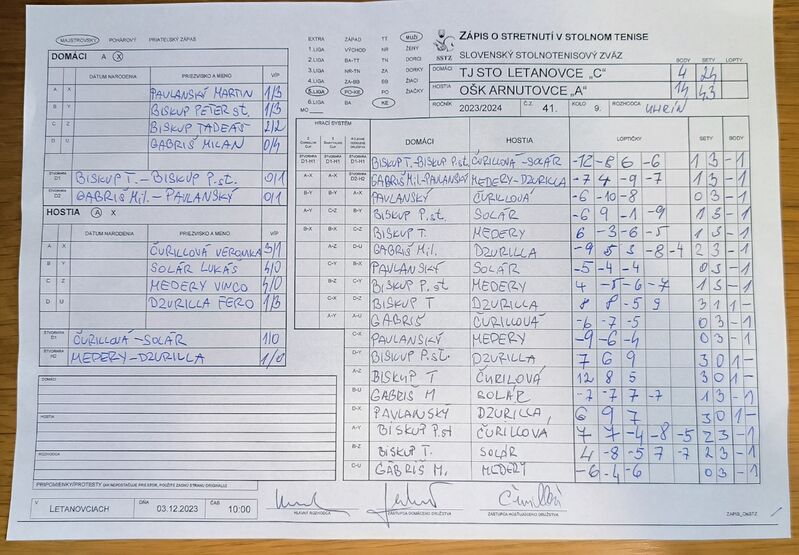 MAJSTROVSKÝ POHÁROVÝ PRIATEĽSKÝ ZÁPAS
DOMÁCI A X
DÁTUM NARODENIA PRIEZVISKO A MENO V/P
A X PAVLANSKÝ MARTIN 1/3
B Y BISKUP PETER st. 1/3
C Z BISKUP TADEÁŠ 2/2
D U GABRIŠ MILAN 0/4
ŠTVORHRA D1 BISKUP T. - BISKUP P.st. 0/1
ŠTVORHRA D2 GABRIŠ Mil. - PAVLANSKÝ 0/1
HOSTIA A X
DÁTUM NARODENIA PRIEZVISKO A MENO V/P
A X ČURILLOVÁ VERONIKA 3/1
B Y SOLÁR LUKÁŠ 4/0
C Z MEDERY VINCO 4/0
D U DZURILLA FERO 1/3
ŠTVORHRA ČURILLOVÁ - SOLÁR 1/0
ŠTVORHRA H2 MEDERY - DZURILLA 1/0
DOMÁCI
HOSTIA
ROZHODCA
PRIPOMIENKY/PROTESTY (AK NEPOSTAČUJE PRIESTOR, POUŽITE ZADNÚ STRANU ORIGINÁLU)
V LETANOVCIACH DŇA 03.12.2023 ČAS 10:00
HLAVNÝ ROZHODCA ZÁSTUPCA DOMÁCEHO DRUŽSTVA ZÁSTUPCA HOSŤUJÚCEHO DRUŽSTVA ZÁPIS_OsSTZ
EXTRA ZÁPAD TT MUŽI
1.LIGA VÝCHOD NR ŽENY
2.LIGA BA-TT TN DORCI
3.LIGA NR-TN ZA DORKY
4.LIGA ZA-BB BB ŽIACI
5.LIGA PO-KE PO ŽIAČKY
6.LIGA BA KE
MO
SSTZ
ZÁPIS O STRETNUTÍ V STOLNOM TENISE
SLOVENSKÝ STOLNOTENISOVÝ ZVÄZ
BODY SETY LOPTY
DOMÁCI TJ STO LETANOVCE „C" 4 24
HOSTIA OŠK ARNUTOVCE „A" 14 43
ROČNÍK 2023/2024 Č.Z. 41. KOLO 9. ROZHODCA UHRÍN
HRACÍ SYSTÉM
DOMÁCI HOSTIA LOPTIČKY SETY BODY
D1-H1 D1-H1 D1-H1 BISKUP T. - BISKUP P.st. ČURILLOVÁ - SOLÁR -12 -8 6 -6 1 3 -1
A-X A-X D2-H2 GABRIŠ Mil - PAVLANSKÝ MEDERY - DZURILLA -7 4 -9 -7 1 3 -1
B-Y B-Y A-X PAVLANSKÝ ČURILLOVÁ -6 -10 -8 0 3 -1
A-Y C-Z B-Y BISKUP P. st. SOLÁR -6 9 -1 -9 1 3 -1
B-X B-X C-Z BISKUP T. MEDERY 6 -3 -6 -5 1 3 -1
A-Z D-U GABRIŠ Mil. DZURILLA -9 5 3 -8 -4 2 3 -1
C-Y PAVLANSKÝ SOLÁR -5 -4 -4 0 3 -1
B-Z C-Y BISKUP P. st MEDERY 4 -5 -6 -7 1 3 -1
C-X D-Z BISKUP T DZURILLA 8 8 -5 9 3 1 1 -
A-Y A-U GABRIŠ ČURILLOVÁ -6 -7 -5 0 3 -1
C-X PAVLANSKÝ MEDERY -9 -6 -4 0 3 -1
D-Y BISKUP P.st. DZURILLA 7 6 9 3 0 1 -
A-Z BISKUP T ČURILOVÁ 12 8 5 3 0 1 -
B-U GABRIŠ M SOLÁR -7 -7 7 -7 1 3 -1
D-X PAVLANSKÝ DZURILLA 6 9 7 3 0 1 -
A-Y BISKUP P.st ČURILLOVA 7 7 -4 -8 -5 2 3 -1
B-Z BISKUP T. SOLÁR 4 -8 -5 7 -7 2 3 -1
C-U GÁBRIŠ M. MEDERY -6 -4 -6 0 3 -1